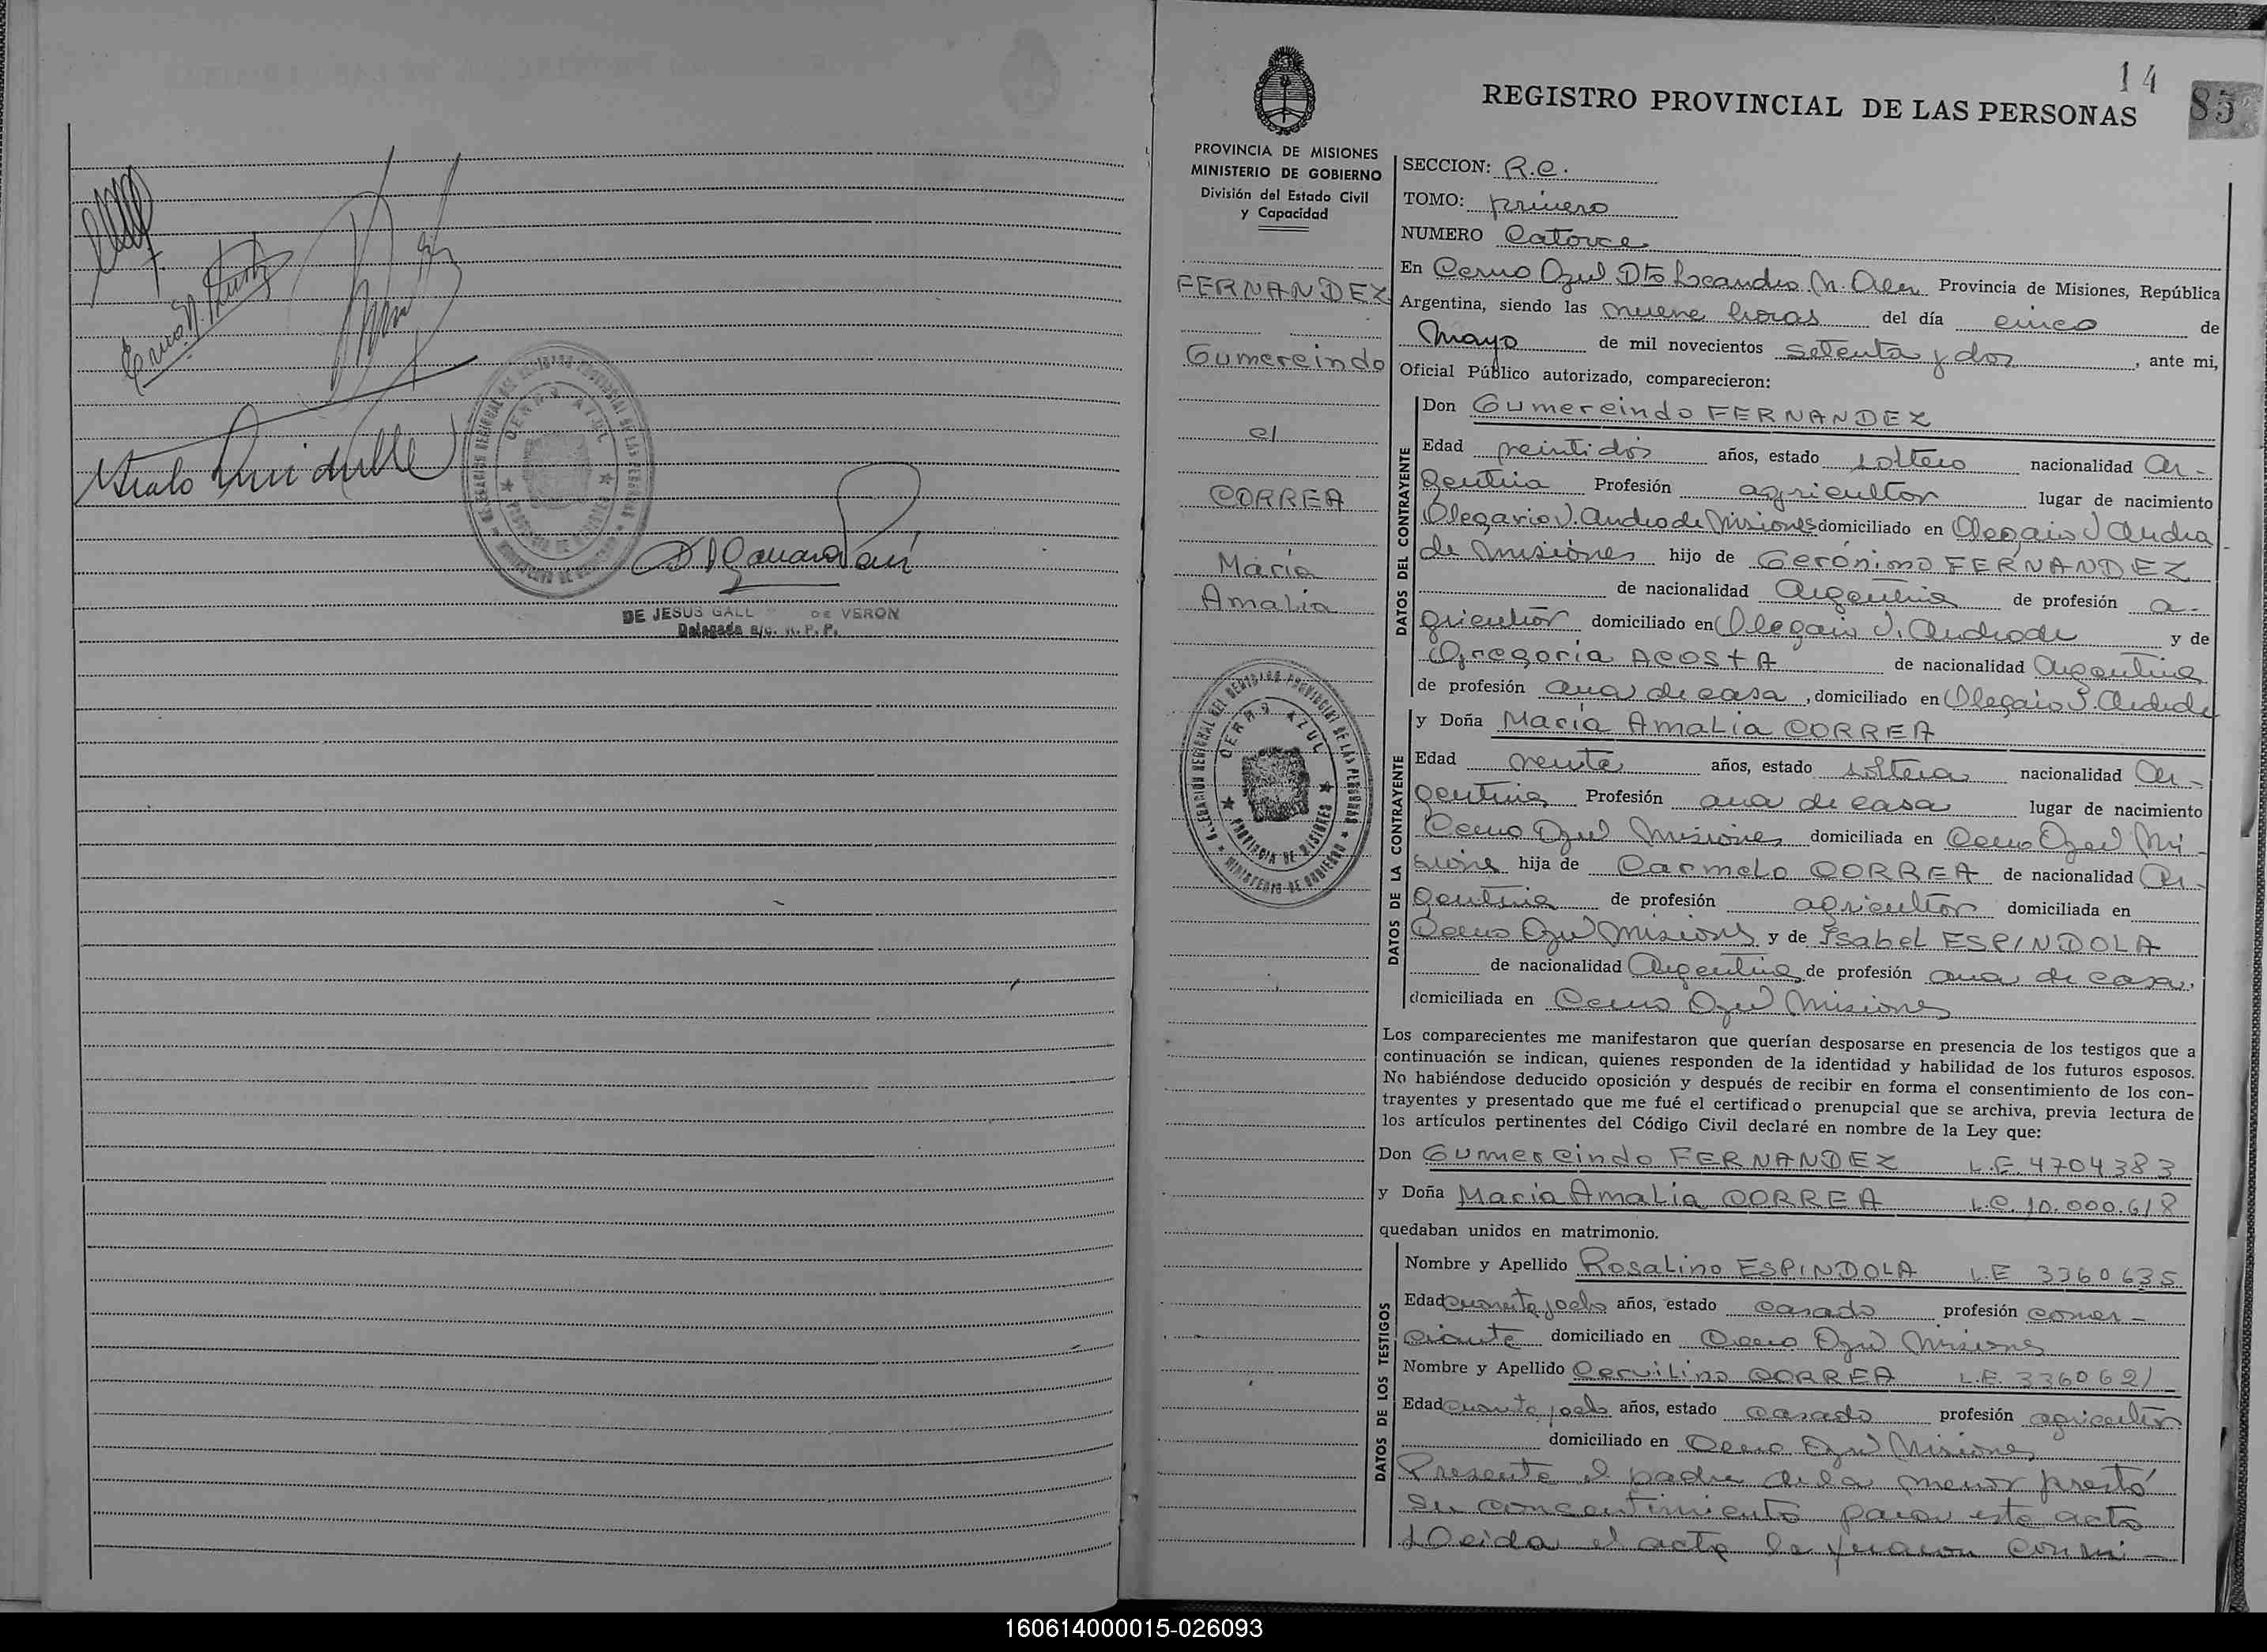 DE JESUS GALL DE VERON
Delegada a/c. R. P. P.
14
85
REGISTRO PROVINCIAL DE LAS PERSONAS
PROVINCIA DE MISIONES
MINISTERIO DE GOBIERNO
División del Estado Civil
y Capacidad
FERNANDEZ
Gumercindo
c/
CORREA
María
Amalia
CERRO AZUL
SECCION: R.C.
TOMO: primero
NUMERO Catorce
En Cerro Azul Dto Leandro N. Alem Provincia de Misiones, República
Argentina, siendo las nueve horas del día cinco de
Mayo de mil novecientos setenta y dos, ante mi,
Oficial Público autorizado, comparecieron:
DATOS DEL CONTRAYENTE
Don Gumercindo FERNANDEZ
Edad veintidós años, estado soltero nacionalidad Ar-
gentina Profesión agricultor lugar de nacimiento
Olegario V. Andrade Misiones domiciliado en Olegario V Andra
de Misiones hijo de Gerónimo FERNANDEZ
de nacionalidad Argentina de profesión a-
gricultor domiciliado en Olegario V. Andrade y de
Gregoria ACOSTA de nacionalidad Argentina
de profesión ama de casa, domiciliado en Olegario V. Andrade
DATOS DE LA CONTRAYENTE
y Doña María Amalia CORREA
Edad veinte años, estado soltera nacionalidad Ar-
gentina Profesión ama de casa lugar de nacimiento
Cerro Azul Misiones domiciliada en Cerro Azul Mi-
siones hija de Carmelo CORREA de nacionalidad Ar-
gentina de profesión agricultor domiciliada en
Cerro Azul Misiones y de Isabel ESPINDOLA
de nacionalidad Argentina de profesión ama de casa,
domiciliada en Cerro Azul Misiones
Los comparecientes me manifestaron que querían desposarse en presencia de los testigos que a
continuación se indican, quienes responden de la identidad y habilidad de los futuros esposos.
No habiéndose deducido oposición y después de recibir en forma el consentimiento de los con-
trayentes y presentado que me fué el certificado prenupcial que se archiva, previa lectura de
los artículos pertinentes del Código Civil declaré en nombre de la Ley que:
Don Gumercindo FERNANDEZ L.E. 4704383
y Doña María Amalia CORREA L.C. 10.000.618
quedaban unidos en matrimonio.
DATOS DE LOS TESTIGOS
Nombre y Apellido Rosalino ESPINDOLA L.E 3360635
Edad cuarenta y ocho años, estado casado profesión comer-
ciante domiciliado en Cerro Azul Misiones
Nombre y Apellido Cervilino CORREA L.E. 3360621
Edad cuarenta y ocho años, estado casado profesión agricultor
domiciliado en Cerro Azul Misiones
Presente el padre de la menor prestó
su concentimiento para este acto
Leida el acta la firman conmi-
160614000015-026093